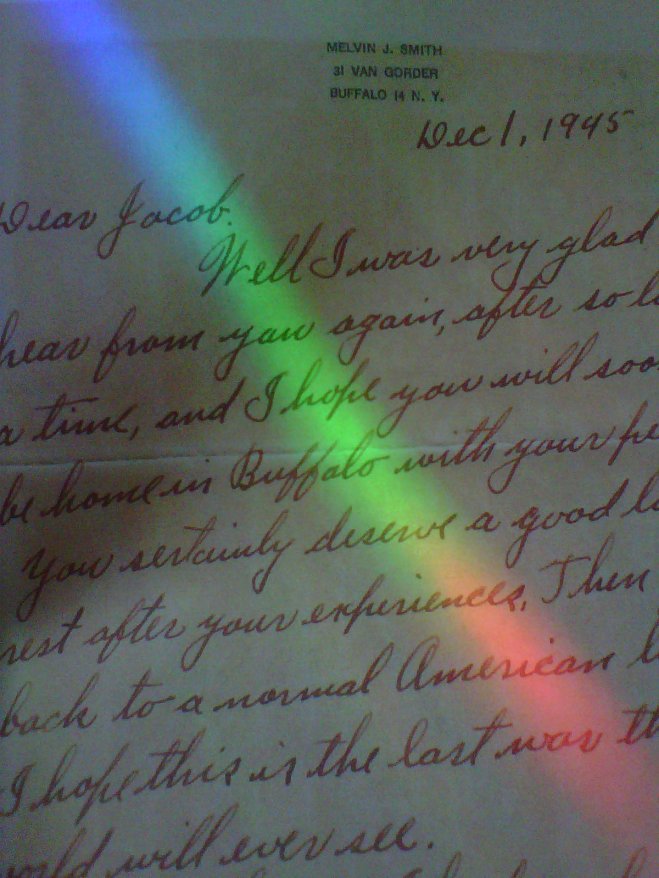 MELVIN J. SMITH
31 VAN GORDER
BUFFALO 14 N. Y.
Dec 1, 1945
Dear Jacob.
Well I was very glad
hear from you again, after so
a time, and I hope you will soo
be home in Buffalo with your pe
You sertainly deserve a good lo
rest after your experiences. Then
back to a normal American l
I hope this is the last war th
world will ever see.